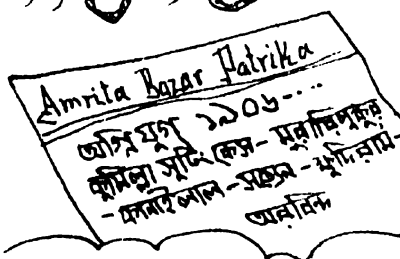 Amrita Bazar Patrika
অগ্নিযুগ ১৯০৬-...
কুমিল্লা সুটিং কেস - মুরারিপুকুর
- কানাইলাল - সত্যেন - ক্ষুদিরাম -
অরবিন্দ